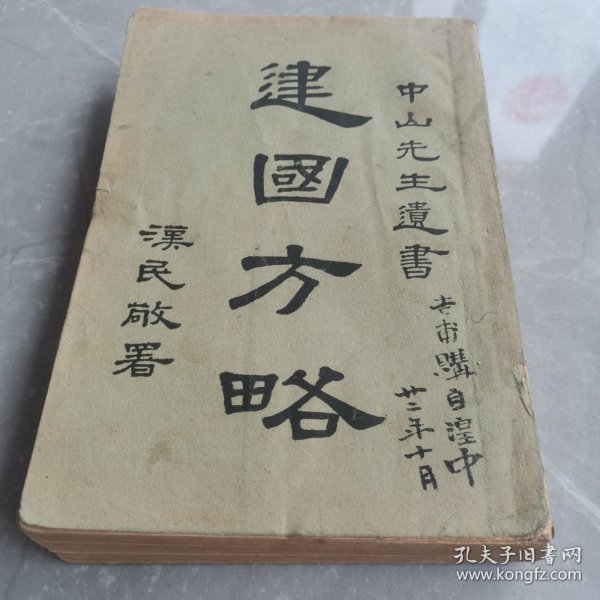 中山先生遺書
建國方略
漢民敬署
購自湟中
廿二年十月
孔夫子旧書网
www.kongfz.com